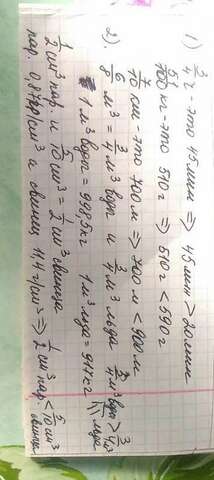 1) 3/4 ч - это 45 мин ⇒ 45 мин > 20 мин
51/100 кг - это 510 г ⇒ 510 г < 590 г
7/10 см - это 700 м ⇒ 700 м < 900 м
2. 6/8 м³ = 3/4 м³ воды и 3/4 м³ льда 3/4 м³ воды > 3/4 м³ льда
1 м³ воды = 998,5 кг 1 м³ льда = 917 кг
1/2 см³ пар. и 5/10 см³ = 1/2 см³ свинца
пар. 0,87 гр/см³ и свинец 11,4 г/см³ ⇒ 1/2 см³ пар < 5/10 см³ свинца